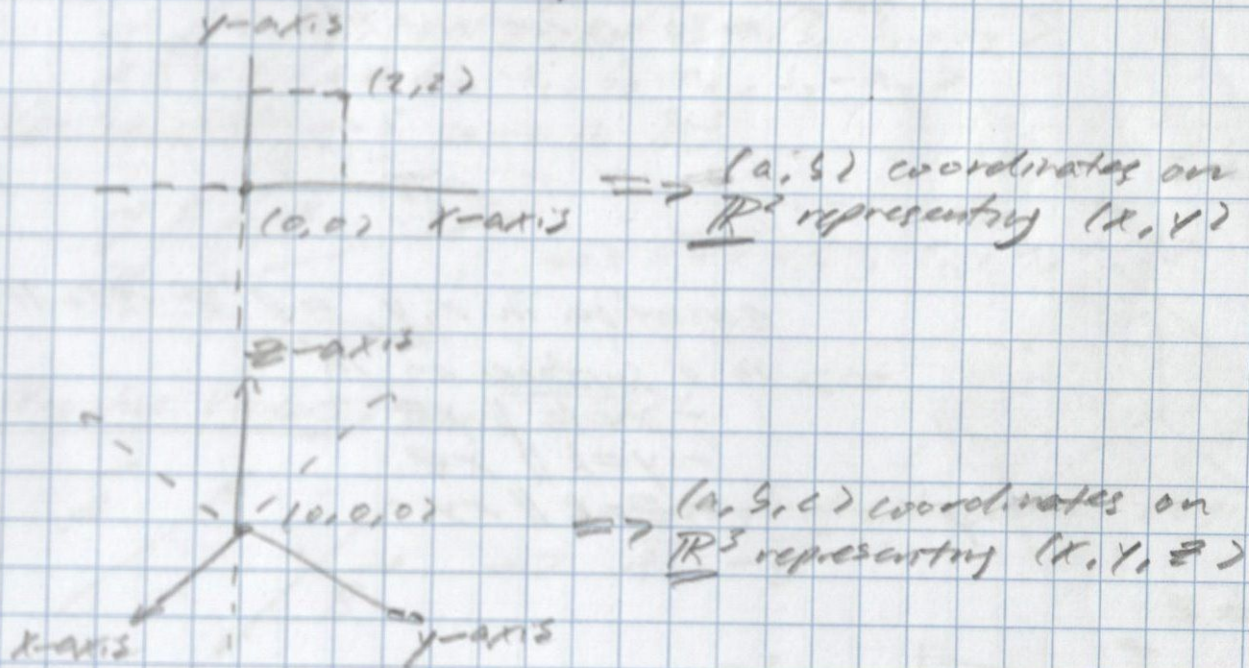 y-axis
(2,2)
(0,0) x-axis
=> (a,b) coordinates on
ℝ² representing (x,y)
z-axis
(0,0,0)
=> (a,b,c) coordinates on
ℝ³ representing (x,y,z)
x-axis
y-axis